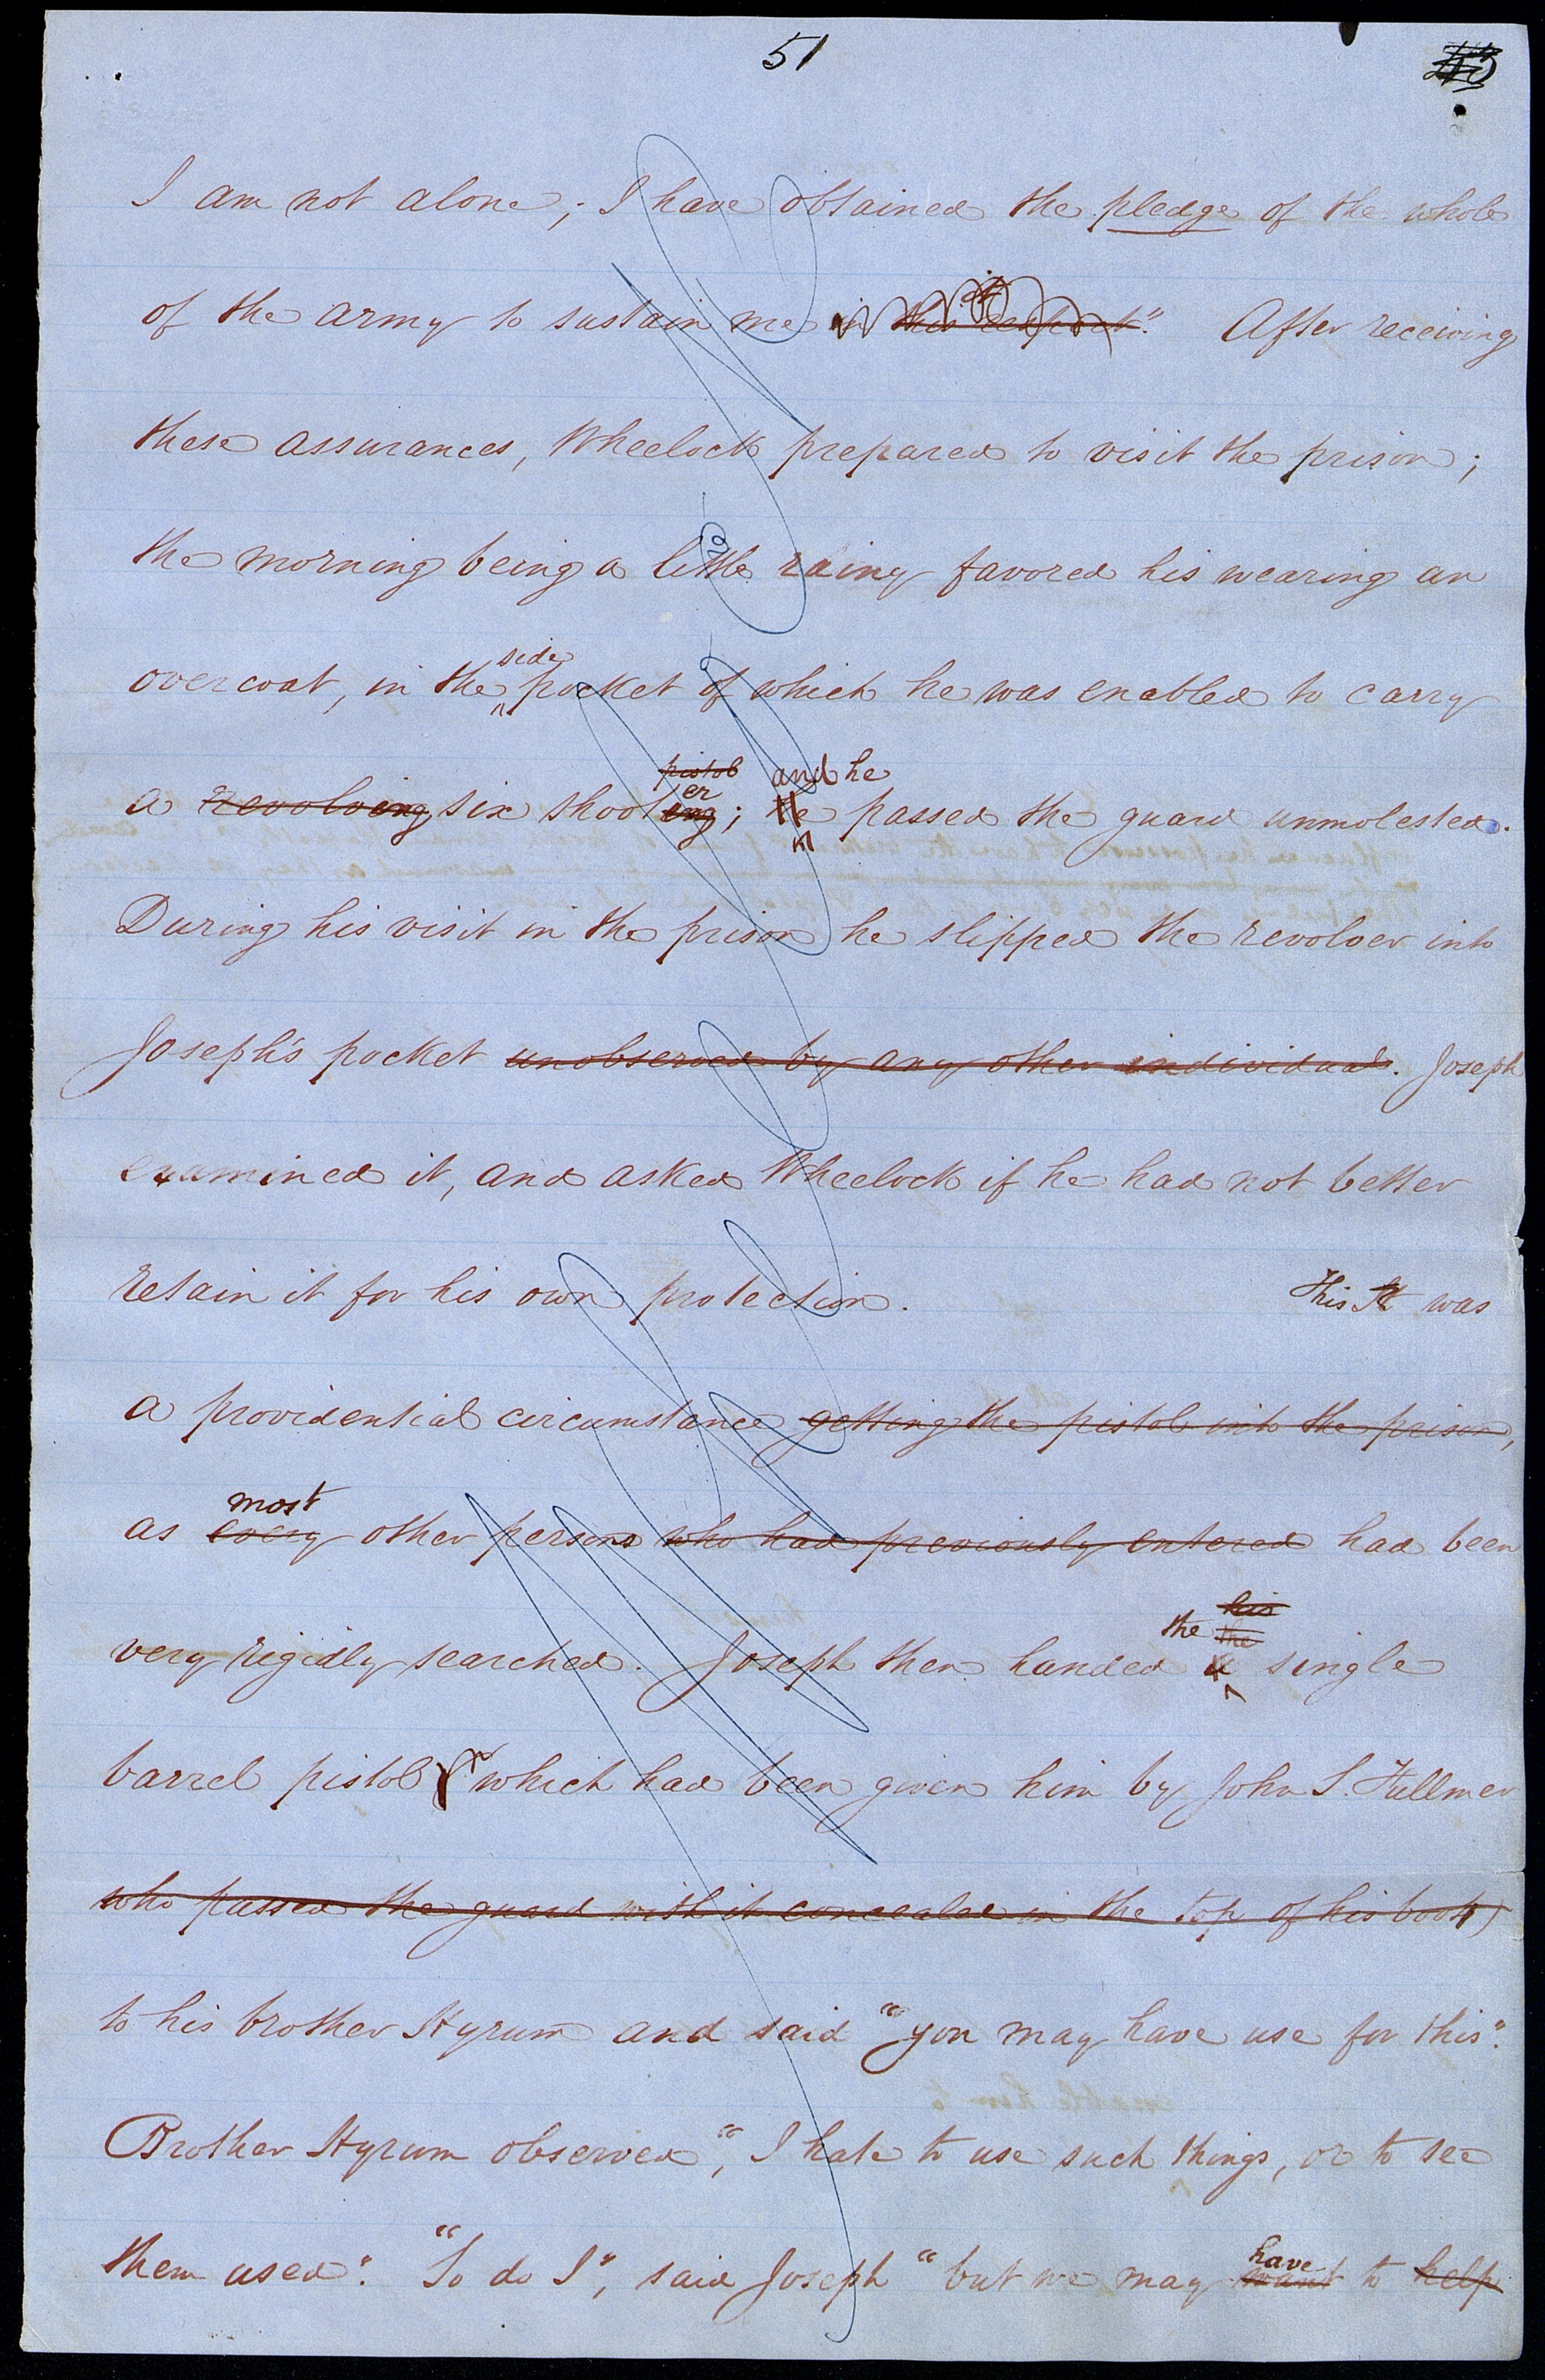 51
I am not alone; I have obtained the pledge of the whole
of the army to sustain me in this respect." After receiving
these assurances, Wheelock prepared to visit the prison;
the morning being a little rainy favored his wearing an
side
overcoat, in the pocket of which he was enabled to carry
pistol and he
er
a revolving six shooting; He passed the guard unmolested.
During his visit in the prison he slipped the revolver into
Joseph's pocket unobserved by any other individual. Joseph
examined it, and asked Wheelock if he had not better
retain it for his own protection. This It was
a providential circumstance getting the pistol into the prison,
most
as every other persons who had previously entered had been
his
the the
very rigidly searched. Joseph then handed a single
barrel pistol (which had been given him by John S. Fullmer
who passed the guard with it concealed in the top of his boot)
to his brother Hyrum and said "you may have use for this".
Brother Hyrum observed, "I hate to use such things, or to see
have
them used". "So do I", said Joseph "but we may want to help